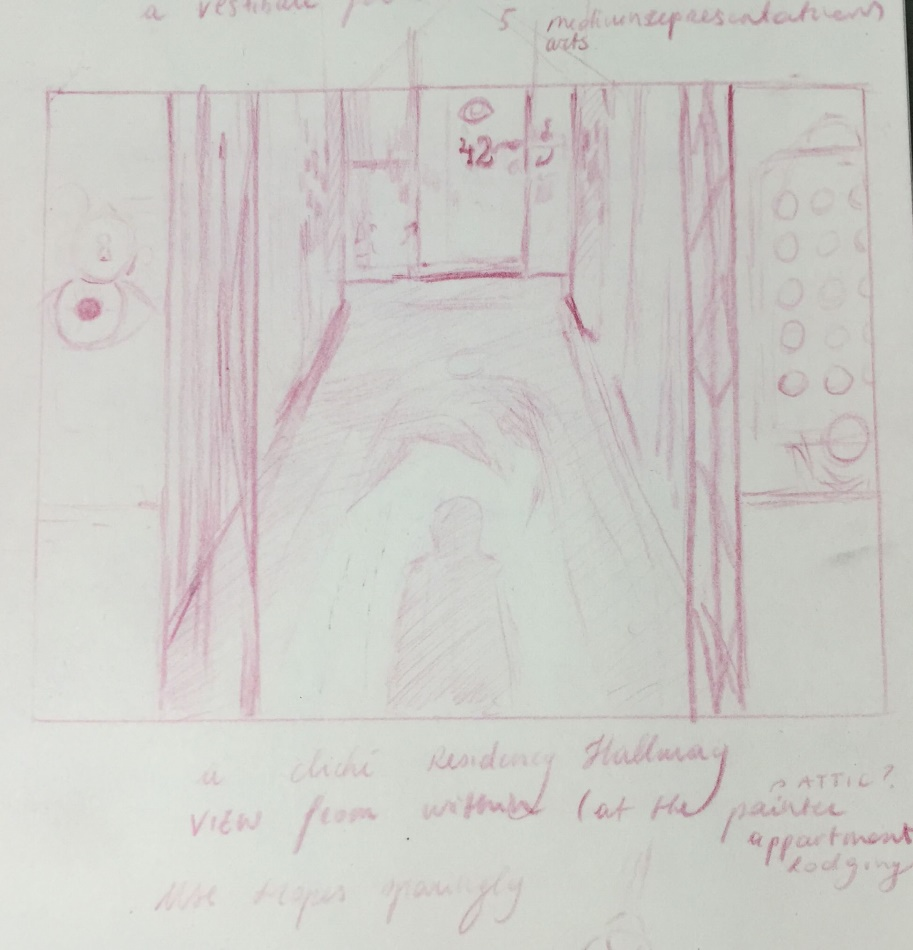 a vestibule
5 mediums representations
arts
42
8
a cliché Residency Hallway
ATTIC?
VIEW from within (at the painter
appartment
lodging
Use sparingly